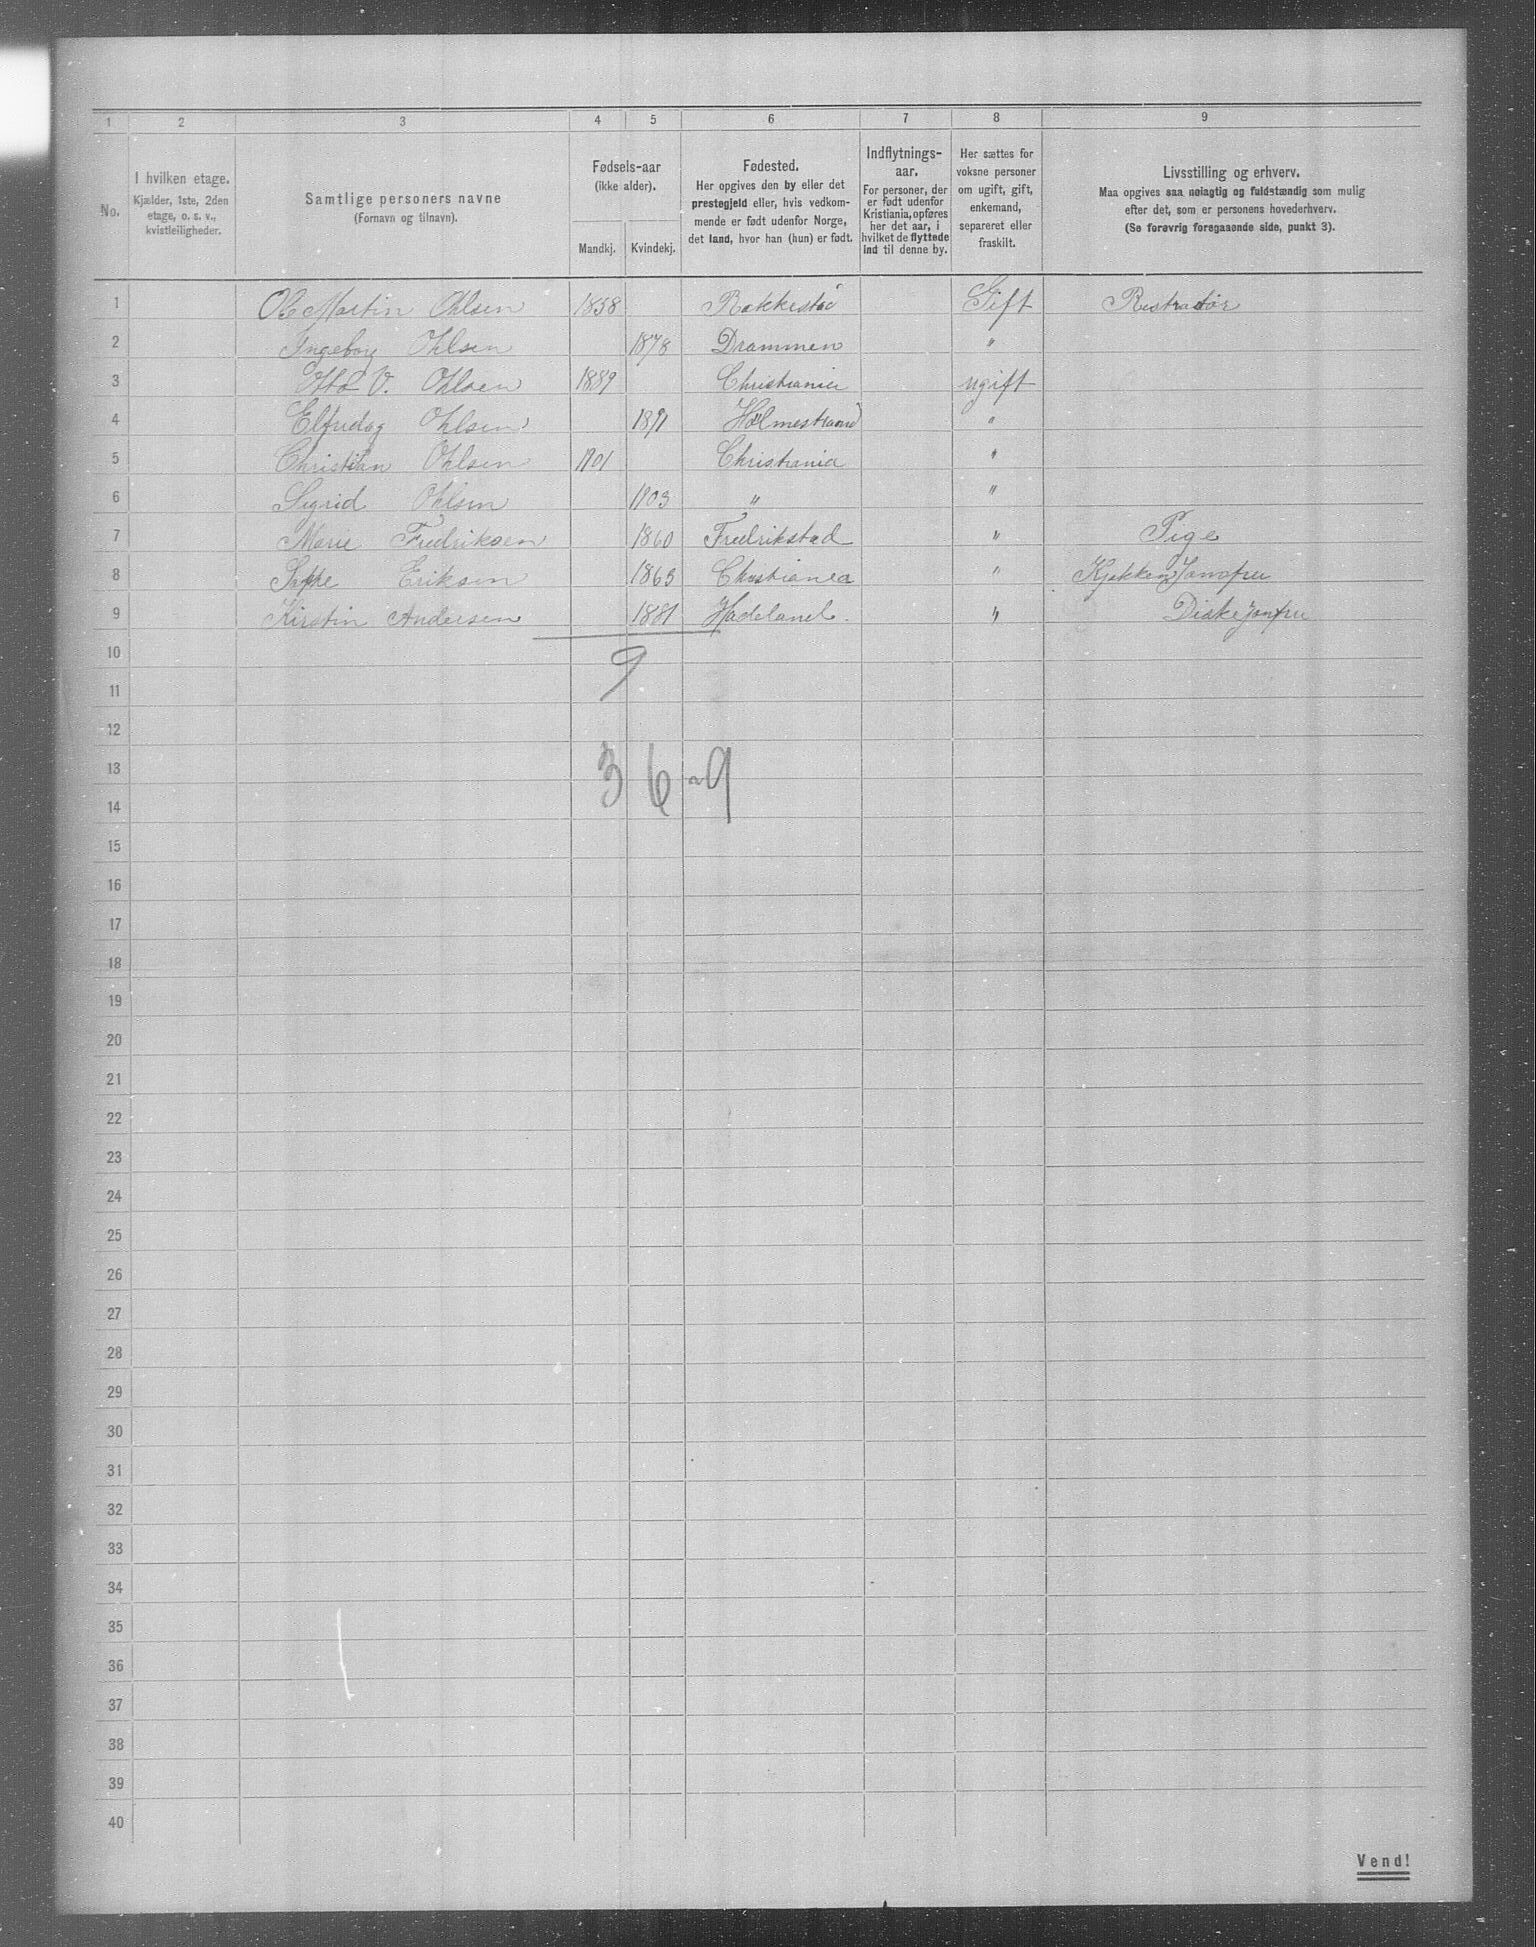 1 2 3 4 5 6 7 8 9
No.
I hvilken etage.
Kjælder, 1ste, 2den
etage, o. s. v.,
kvistleiligheder.
Samtlige personers navne
(Fornavn og tilnavn).
Fødsels-aar
(ikke alder).
Mandkj. Kvindekj.
Fødested.
Her opgives den by eller det
prestegjeld eller, hvis vedkom-
mende er født udenfor Norge,
det land, hvor han (hun) er født.
Indflytnings-
aar.
For personer, der
er født udenfor
Kristiania, opføres
her det aar, i
hvilket de flyttede
ind til denne by.
Her sættes for
voksne personer
om ugift, gift,
enkemand,
separeret eller
fraskilt.
Livsstilling og erhverv.
Maa opgives saa nøiagtig og fuldstændig som mulig
efter det, som er personens hovederhverv.
(Se forøvrig foregaaende side, punkt 3).
1 Ole Martin Ohlsen 1858 Rakkestad Gift Restratør
2 Ingeborg Ohlsen 1878 Drammen "
3 V. Ohlsen 1889 Christiania ugift
4 Ohlsen 1891 Holmestrand "
5 Christian Ohlsen 1901 Christiania "
6 Sigrid Ohlsen 1903 " "
7 Marie Fredriksen 1860 Fredrikstad " Pige
8 Eriksen 1863 Christiania " Kjøkken Jomfru
9 Kirstin Andersen 1881 Hadeland. " Diskejomfru
10
9
11
12
13
3 6 - 9
14
15
16
17
18
19
20
21
22
23
24
25
26
27
28
29
30
31
32
33
34
35
36
37
38
39
40
Vend!